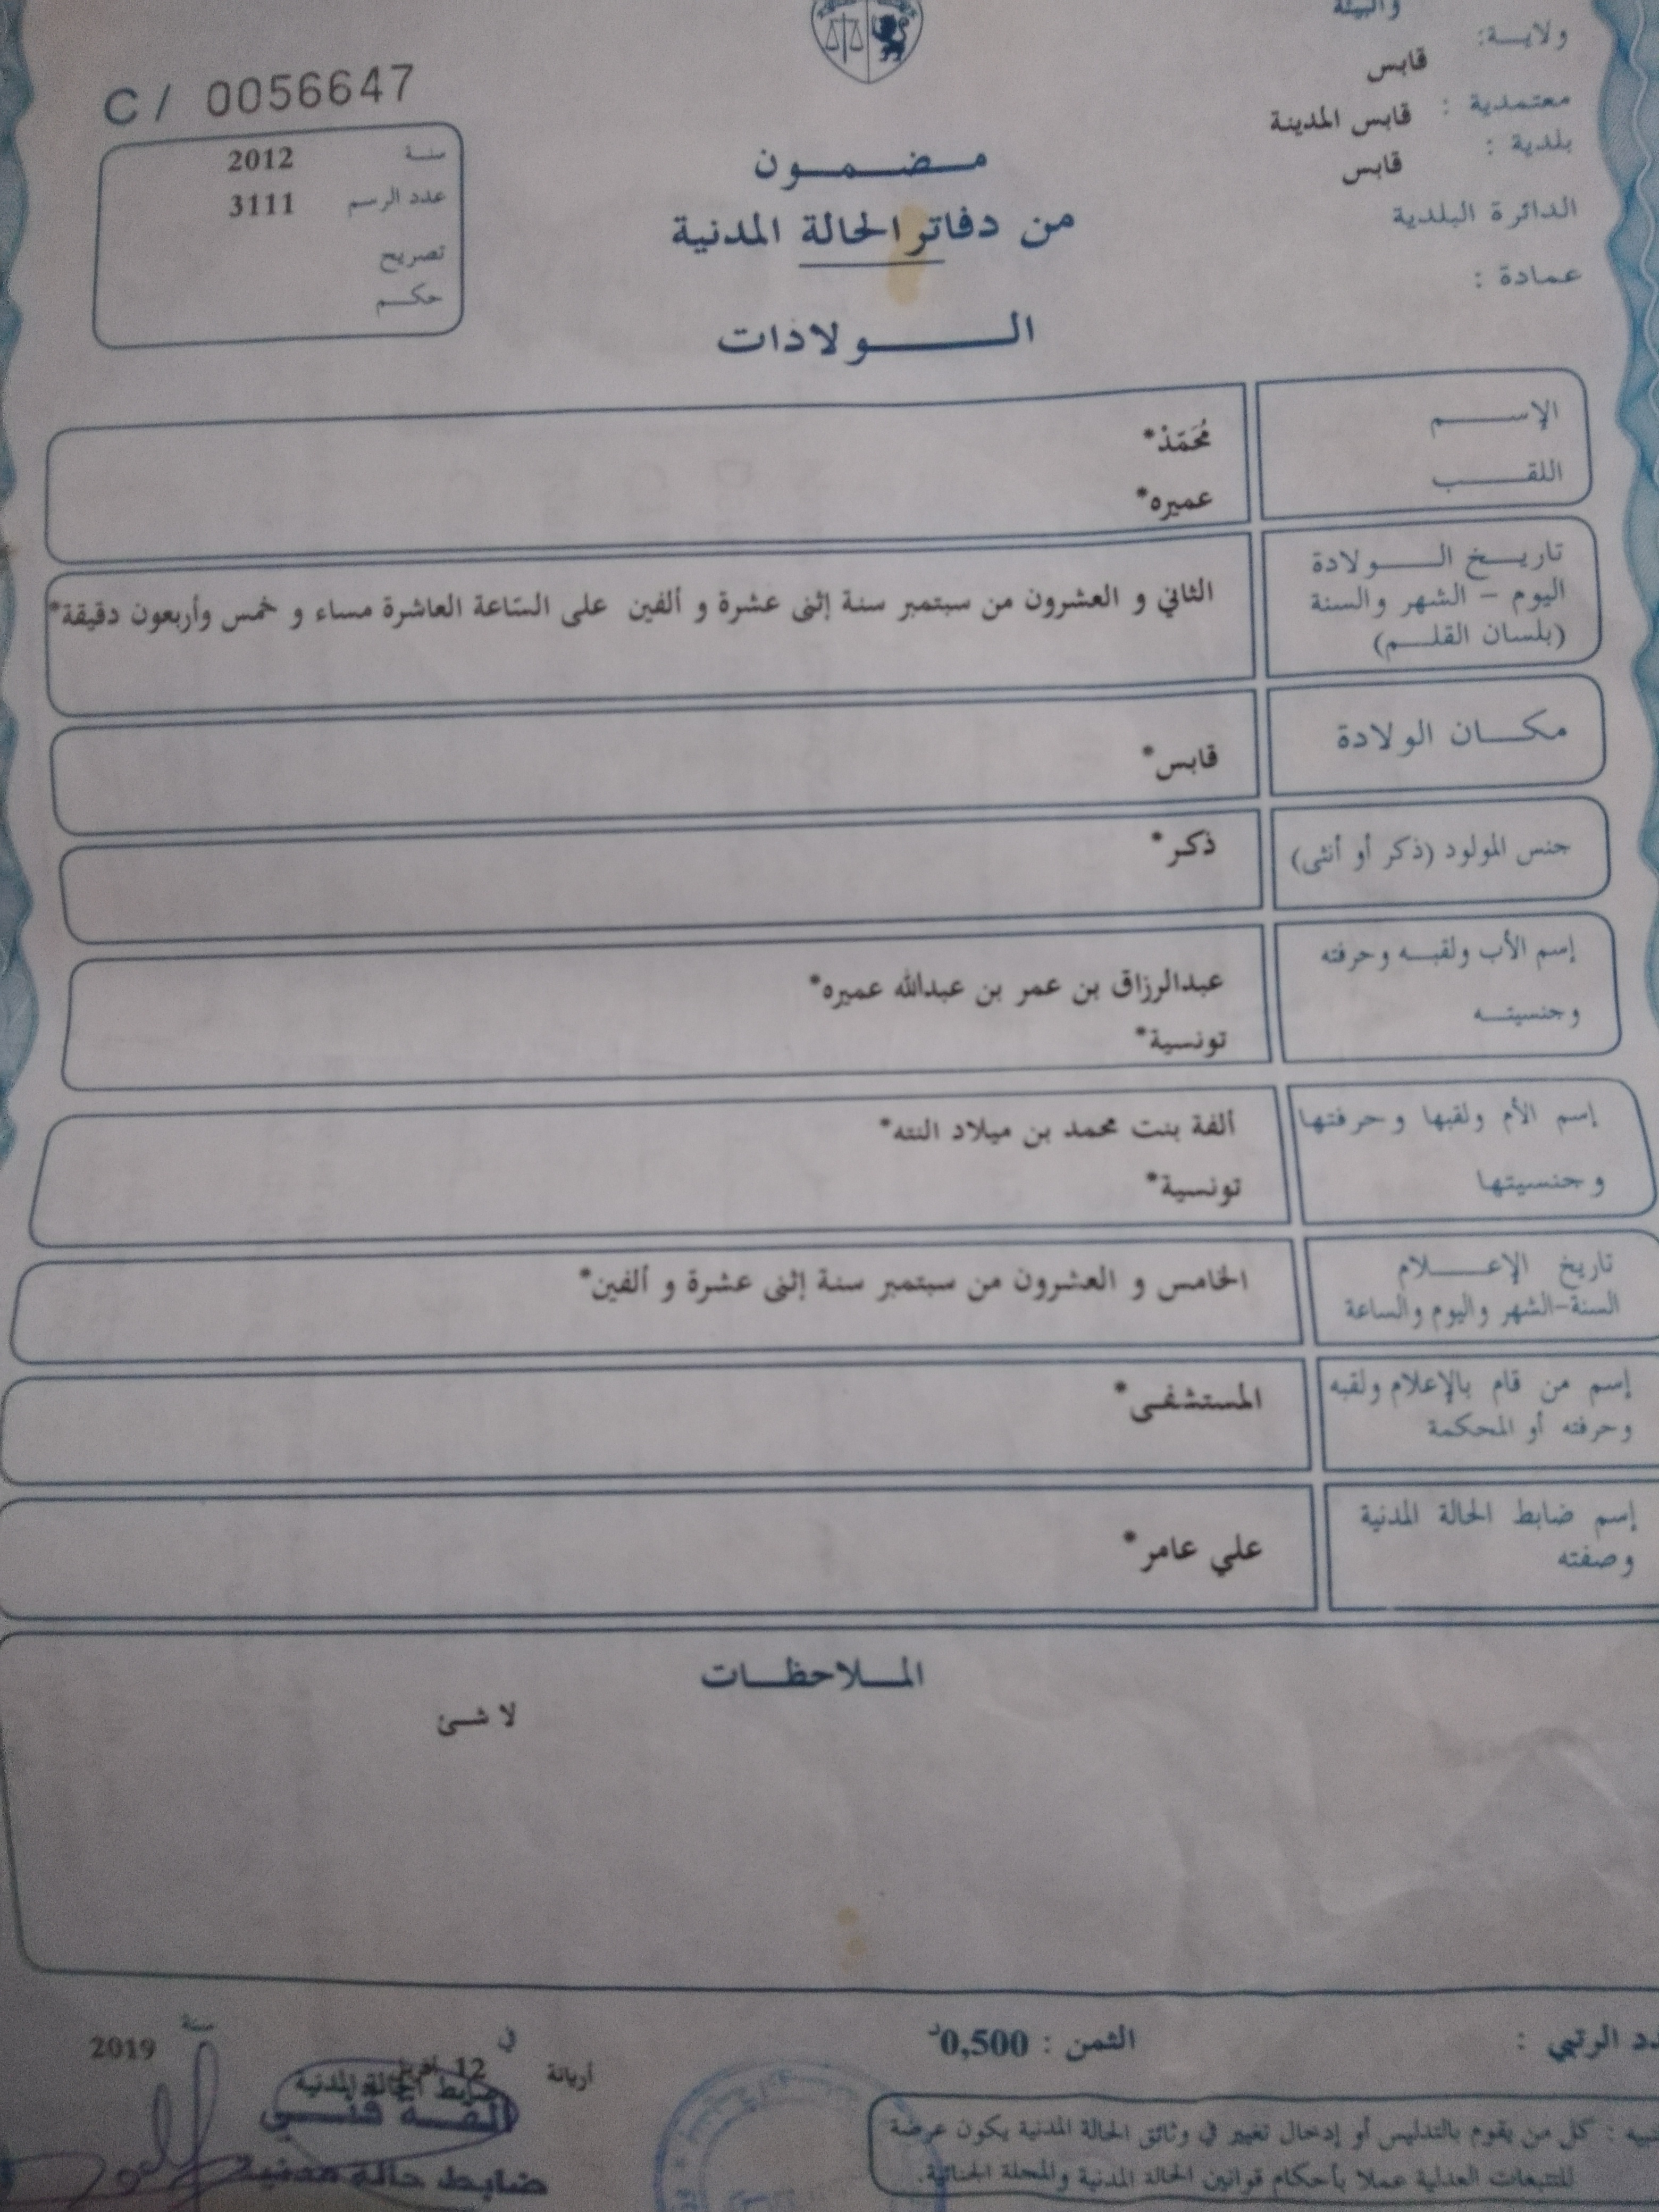 والبيئة
ولايــة:
قابس
معتمدية :
قابس المدينة
بلدية :
قابس
الدائرة البلدية
عمادة :
C / 0056647
سنة 2012
عدد الرسم 3111
تصريح
حكم
مضمون
من دفاتر الحالة المدنية
الولادات
الإسم
مُحَمّدْ*
اللقب
عميره*
تاريخ الولادة
اليوم – الشهر والسنة
(بلسان القلم)
الثاني و العشرون من سبتمبر سنة إثنى عشرة و ألفين على السّاعة العاشرة مساء و خمس وأربعون دقيقة*
مكان الولادة
قابس*
جنس المولود (ذكر أو أنثى)
ذكر*
إسم الأب ولقبه وحرفته
عبدالرزاق بن عمر بن عبدالله عميره*
وجنسيته
تونسية*
إسم الأم ولقبها وحرفتها
ألفة بنت محمد بن ميلاد النته*
وجنسيتها
تونسية*
تاريخ الإعلام
السنة-الشهر واليوم والساعة
الخامس و العشرون من سبتمبر سنة إثنى عشرة و ألفين*
إسم من قام بالإعلام ولقبه
وحرفته أو المحكمة
المستشفى*
إسم ضابط الحالة المدنية
وصفته
علي عامر*
الملاحظات
لا شئ
دد الرتبي :
الثمن : 0,500د
أريانة في 12 أفريل سنة 2019
ضابط الحالة المدنية
ألفة فني
ضابط حالة مدنية
نبيه : كل من يقوم بالتدليس أو إدخال تغيير في وثائق الحالة المدنية يكون عرضة
للتتبعات العدلية عملا بأحكام قوانين الحالة المدنية والمجلة الجنائية.